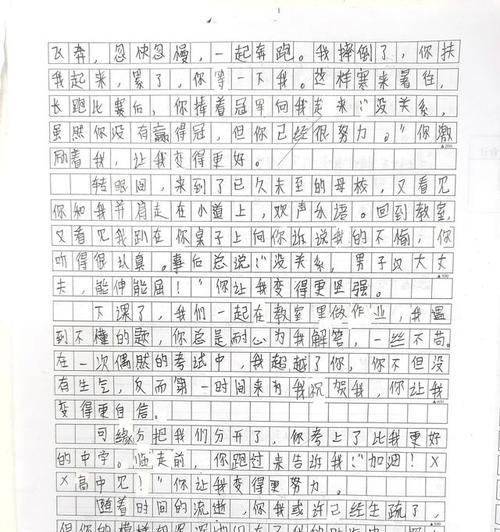 飞奔，忽快忽慢，一起奔跑。我摔倒了，你扶
我起来，累了，你等一下我。这样寒来暑往，
长跑比赛后，你捧着冠军向我走来：“没关系，
虽然你没有赢得冠，但你已经很努力。”你激
励着我，让我变得更好。
转眼间，来到了已久未至的母校，又看见
你和我并肩走在小道上，欢声办语。回到教室，
又看见我趴在你桌子上向你诉说我的不愉，你
听得很认真。事后总说：“没关系，男子汉大丈
夫，能伸能屈！”你让我变得更坚强。
下课了，我们一起在教室里做作业，我遇
到不懂的题，你总是耐心为我解答，一丝不苟。
在一次偶然的考试中，我超越了你，你不但没
有生气，反而第一时间来为我祝贺我，你让我
变得更自信。
可缘分把我们分开了，你考上了比我更好
的中学。临走前，你跑过来告诉我：“加油！X
X高中见！”你让我变得更努力。
随着时间的流逝，你我或许已经生疏了，